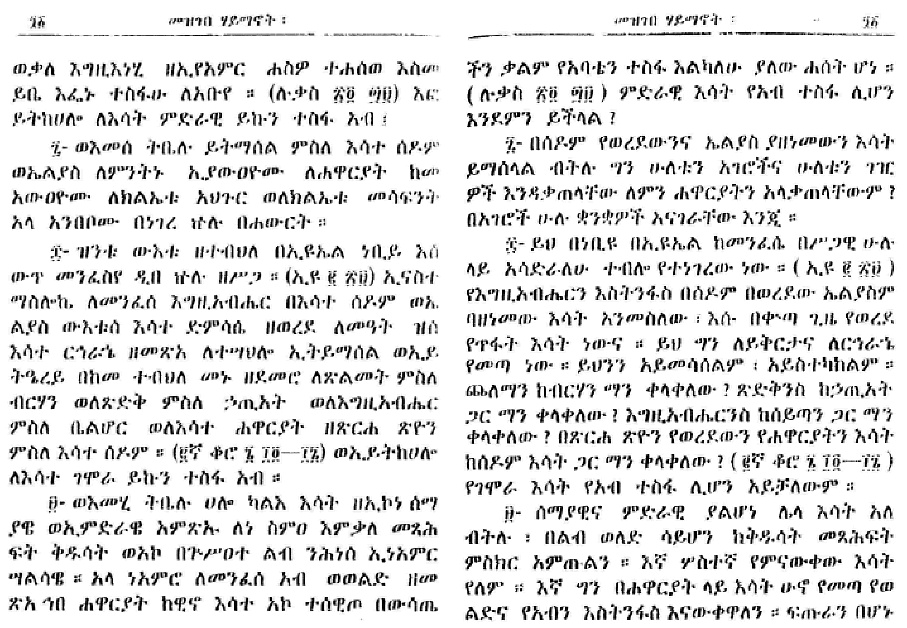 ፶፩ መዝገበ ሃይማኖት ፡
ወቃለ እግዚእነሂ ዘኢየአምር ሐስዎ ተሐሰወ እስመ
ይቤ እፌኑ ተስፋሁ ለአቡየ ። (ሉቃስ ፳፬ ፵፱) እፎ
ይትከሀሎ ለእሳት ምድራዊ ይኩን ተስፋ አብ ፤
፯- ወእመሰ ትቤሉ ይትማሰል ምስለ እሳተ ሰዶም
ወኤልያስ ለምንትኑ ኢያውዐዮሙ ለሐዋርያት ከመ
አውዐዮሙ ለክልኤቱ አህጉር ወለክልኤቱ መሳፍንት
አላ አንበቦሙ በነገረ ኵሉ በሐውርት ።
፰- ዝንቱ ውእቱ ዘተብህለ በኢዩኤል ነቢይ እሰ
ውጥ መንፈስየ ዲበ ኵሉ ዘሥጋ ። (ኢዩ ፪ ፳፰) ኢናስተ
ማስሎኬ ለመንፈሰ እግዚአብሔር በእሳተ ሰዶም ወኤ
ልያስ ውእቱሰ እሳተ ድምሳሴ ዘወረደ ለመዓት ዝሰ
እሳተ ርኅራኄ ዘመጽአ ለተሣህሎ ኢትይማሰል ወኢይ
ትዔረይ በከመ ተብህለ መኑ ዘደመሮ ለጽልመት ምስለ
ብርሃን ወለጽድቅ ምስለ ኃጢአት ወለእግዚአብሔር
ምስለ ቤልሆር ወለእሳተ ሐዋርያት ዘጽርሐ ጽዮን
ምስለ እሳተ ሰዶም ። (፪ኛ ቆሮ ፮ ፲፬—፲፮) ወኢይትከሀሎ
ለእሳተ ገሞራ ይኩን ተስፋ አብ ።
፱- ወእመሂ ትቤሉ ሀሎ ካልእ እሳት ዘኢኮነ ሰማ
ያዌ ወኢምድራዌ አምጽኡ ለነ ስምዐ እምቃለ መጻሕ
ፍት ቅዱሳት ወአኮ በጕሥዐተ ልብ ንሕነሰ ኢነአምር
ሣልሳዌ ። አላ ነአምሮ ለመንፈሰ አብ ወወልድ ዘመ
ጽአ ኀበ ሐዋርያት ከዊኖ እሳተ አኮ ተሰዊጦ በውሳጤ
መዝገበ ሃይማኖት ፡ ፶፩
ችን ቃልም የአባቴን ተስፋ እልካለሁ ያለው ሐሰት ሆነ ።
(ሉቃስ ፳፬ ፵፱) ምድራዊ እሳት የአብ ተስፋ ሊሆን
እንደምን ይችላል ?
፯- በሰዶም የወረደውንና ኤልያስ ያዘነመውን እሳት
ይማስላል ብትሉ ግን ሁለቱን አገሮችና ሁለቱን ገዢ
ዎች እንዳቃጠላቸው ለምን ሐዋርያትን አላቃጠላቸውም ?
በአገሮች ሁሉ ቋንቋዎች አናገራቸው እንጂ ።
፰- ይህ በነቢዩ በኢዩኤል ከመንፈሴ በሥጋዊ ሁሉ
ላይ አሳድራለሁ ተብሎ የተነገረው ነው ። (ኢዩ ፪ ፳፰)
የእግዚአብሔርን እስትንፋስ በሰዶም በወረደው ኤልያስም
ባዘነመው እሳት አንመስለው ፡ እሱ በቍጣ ጊዜ የወረደ
የጥፋት እሳት ነውና ። ይህ ግን ለይቅርታና ለርኅራኄ
የመጣ ነው ። ይህንን አይመሳሰልም ፡ አይስተካከልም ።
ጨለማን ከብርሃን ማን ቀላቀለው ? ጽድቅንስ ከኃጢአት
ጋር ማን ቀላቀለው ? እግዚአብሔርንስ ከሰይጣን ጋር ማን
ቀላቀለው ? በጽርሐ ጽዮን የወረደውን የሐዋርያትን እሳት
ከሰዶም እሳት ጋር ማን ቀላቀለው ? (፪ኛ ቆሮ ፮ ፲፬—፲፮)
የገሞራ እሳት የአብ ተስፋ ሊሆን አይቻለውም ።
፱- ሰማያዊና ምድራዊ ያልሆነ ሌላ እሳት አለ
ብትሉ ፡ በልብ ወለድ ሳይሆን ከቅዱሳት መጻሕፍት
ምስክር አምጡልን ። እኛ ሦስተኛ የምናውቀው እሳት
የለም ። እኛ ግን በሐዋርያት ላይ እሳት ሁኖ የመጣ የወ
ልድና የአብን እስትንፋስ እናውቀዋለን ። ፍጡራን በሆኑ